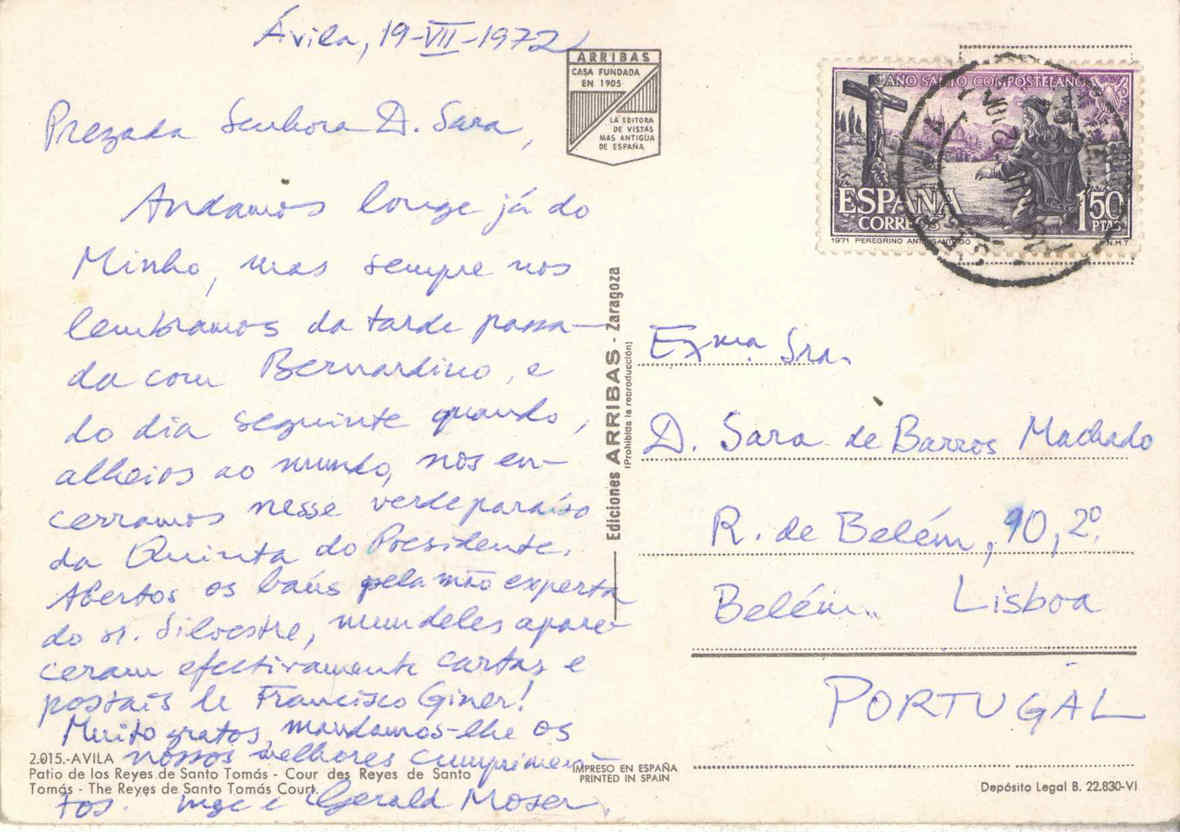 Ávila, 19-VII-1972
Prezada Senhora D. Sara,
Andamos longe já do
Minho, mas sempre nos
lembramos da tarde passa-
da com Bernardino, e
do dia seguinte quando,
alheios ao mundo, nos en-
cerramos nesse verde paraíso
da Quinta do Presidente.
Abertos os baús pela mão experta
do sr. Silvestre, num deles apare-
ceram efectivamente cartas e
postais de Francisco Giner!
Muito gratos, mandamos-lhe os
nossos melhores cumprimen-
tos. Gerald Moser
2.015.-AVILA
Patio de los Reyes de Santo Tomás - Cour des Reyes de Santo
Tomás - The Reyes de Santo Tomás Court.
ARRIBAS
CASA FUNDADA
EN 1905
LA EDITORA
DE VISTAS
MAS ANTIGUA
DE ESPAÑA
Ediciones ARRIBAS - Zaragoza
(Prohibida la reproducción)
IMPRESO EN ESPAÑA
PRINTED IN SPAIN
AÑO SANTO COMPOSTELANO
ESPAÑA
CORREOS
1'50
PTAS
1971 PEREGRINO ANTE SANTIAGO
F.N.M.T.
Exma Sra.
D. Sara de Barros Machado
R. de Belém, 90, 2º
Belém Lisboa
PORTUGAL
Depósito Legal B. 22.830-VI